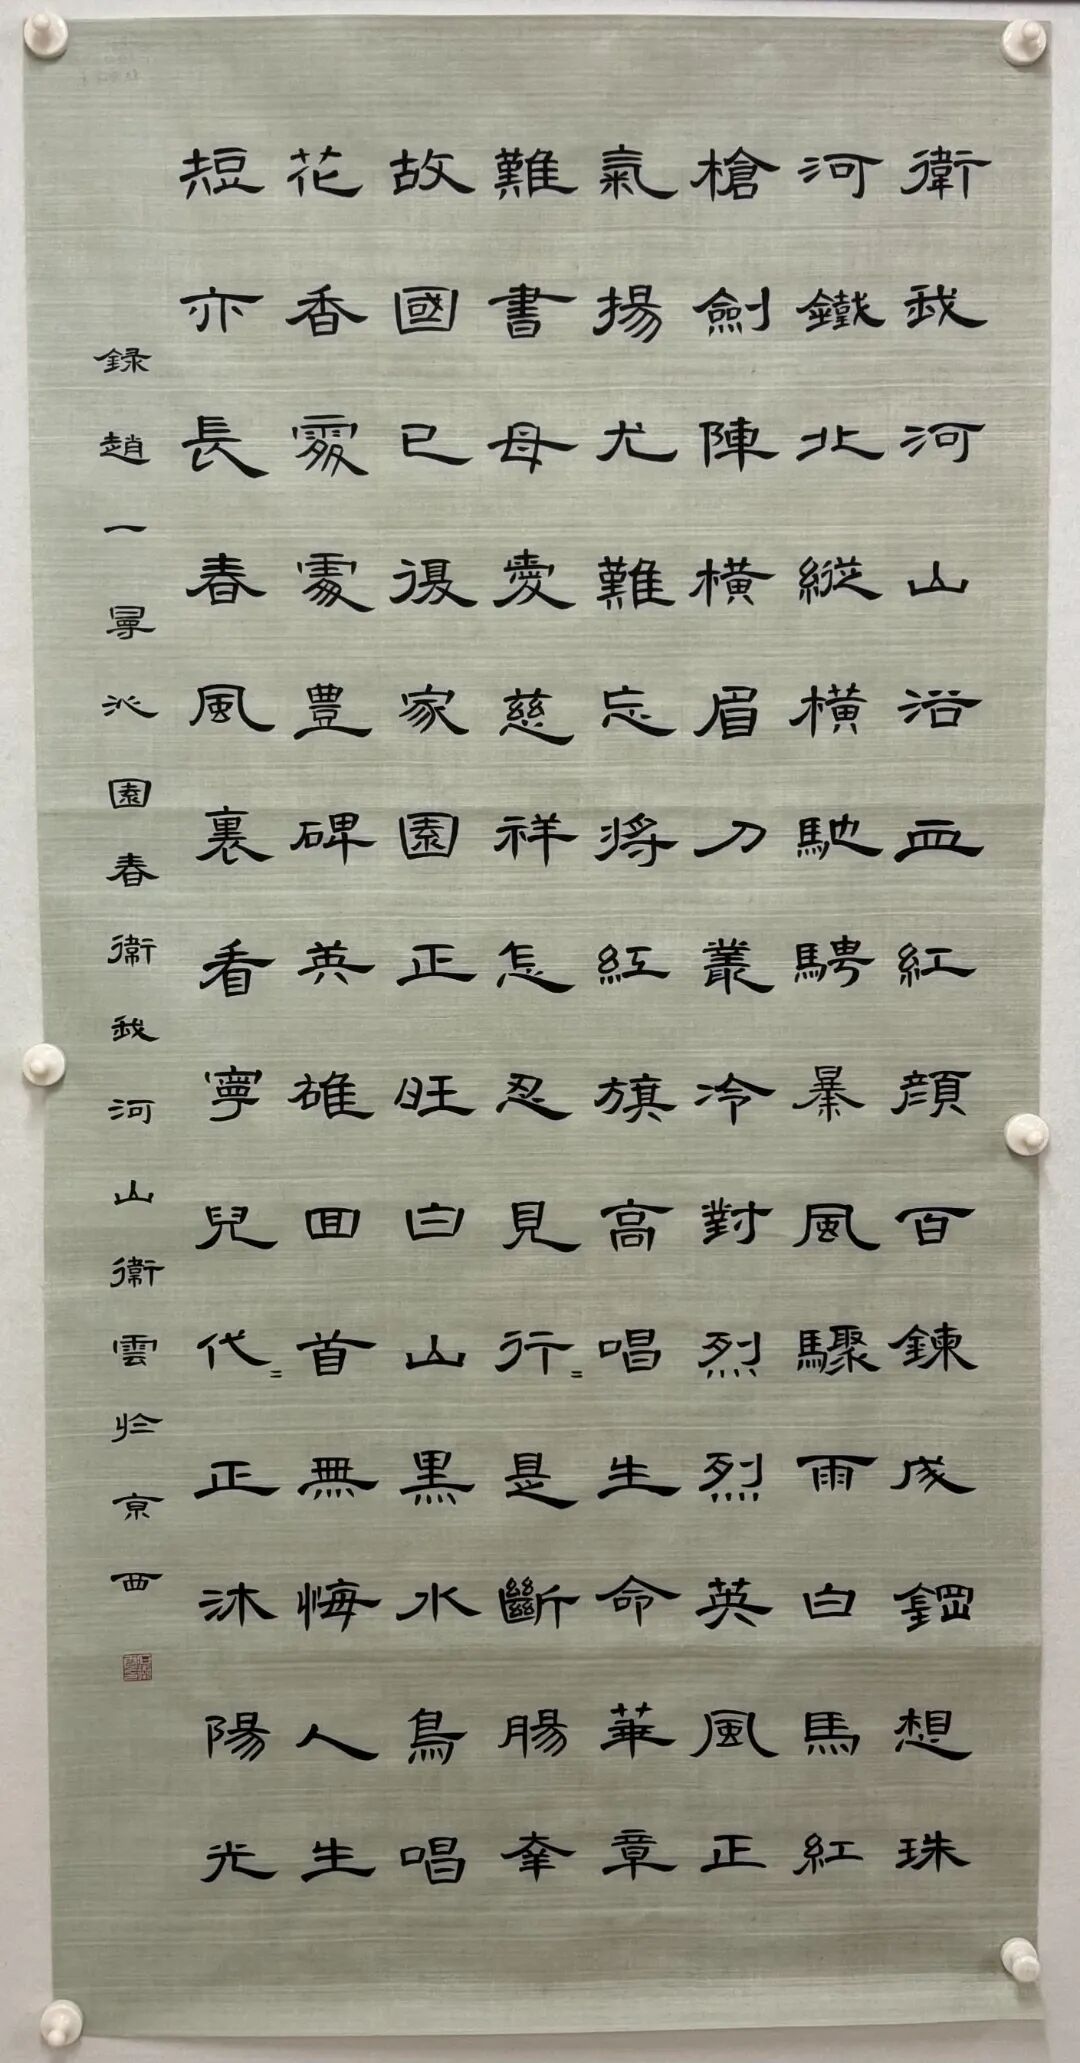 衛我河山浴血紅顏百鍊成鋼想珠
河鐵北縱橫馳騁暴風驟雨白馬紅
槍劍陣橫眉刀叢冷對烈烈英風正
氣揚尤難忘將紅旗高唱生命華章
難書母愛慈祥怎忍見行=是斷腸牵
故國已復家園正旺白山黑水鳥唱
花香處處豊碑英雄回首無悔人生
短亦長春風裏看寧兒代=正沐陽光
録趙一曼沁園春衛我河山衛雲於京西